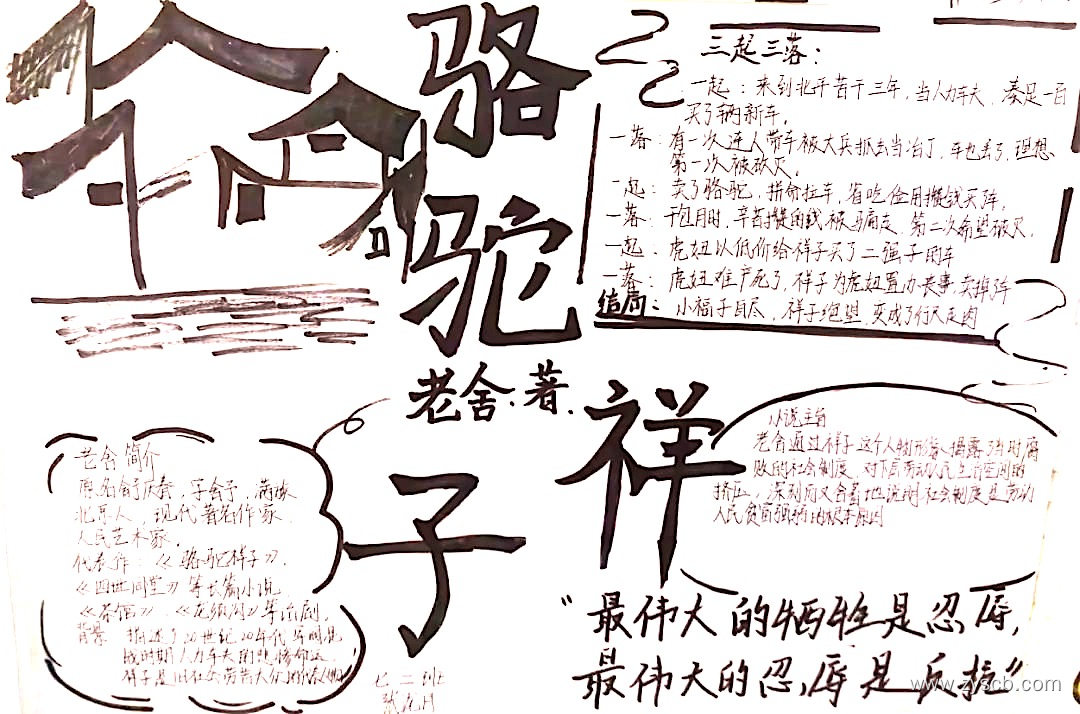 骆
驼
祥
子
老舍:著.
三起三落:
一起:来到北平苦干三年,当人力车夫,凑足一百
买了辆新车。
一落:有一次连人带车被大兵抓去当治丁,车也丢了,理想
第一次被破灭。
一起:卖了骆驼,拼命拉车,省吃俭用攒钱买车。
一落:干包月时,辛苦攒的钱被骗走,第二次希望破灭。
一起:虎妞以低价给祥子买了二强子的车
一落:虎妞难产死了,祥子为虎妞置办丧事,卖掉车
结局:小福子自尽,祥子绝望,变成了行尸走肉
老舍简介
原名舒庆春,字舍予,满族
北京人,现代著名作家
人民艺术家。
代表作:《骆驼祥子》、
《四世同堂》等长篇小说
《茶馆》、《龙须沟》等话剧。
背景 描述了20世纪20年代军阀混
战时期人力车夫的悲惨命运
祥子是旧社会劳苦大众的
小说主旨
老舍通过祥子这个人物形象揭露了当时腐
败的社会制度,对下层劳动人民生存空间的
挤压,深刻而又含蓄地说明社会制度是劳动
人民贫困的根本原因
“最伟大的牺牲是忍辱,
最伟大的忍辱是反抗”
七二班
www.zyscb.com